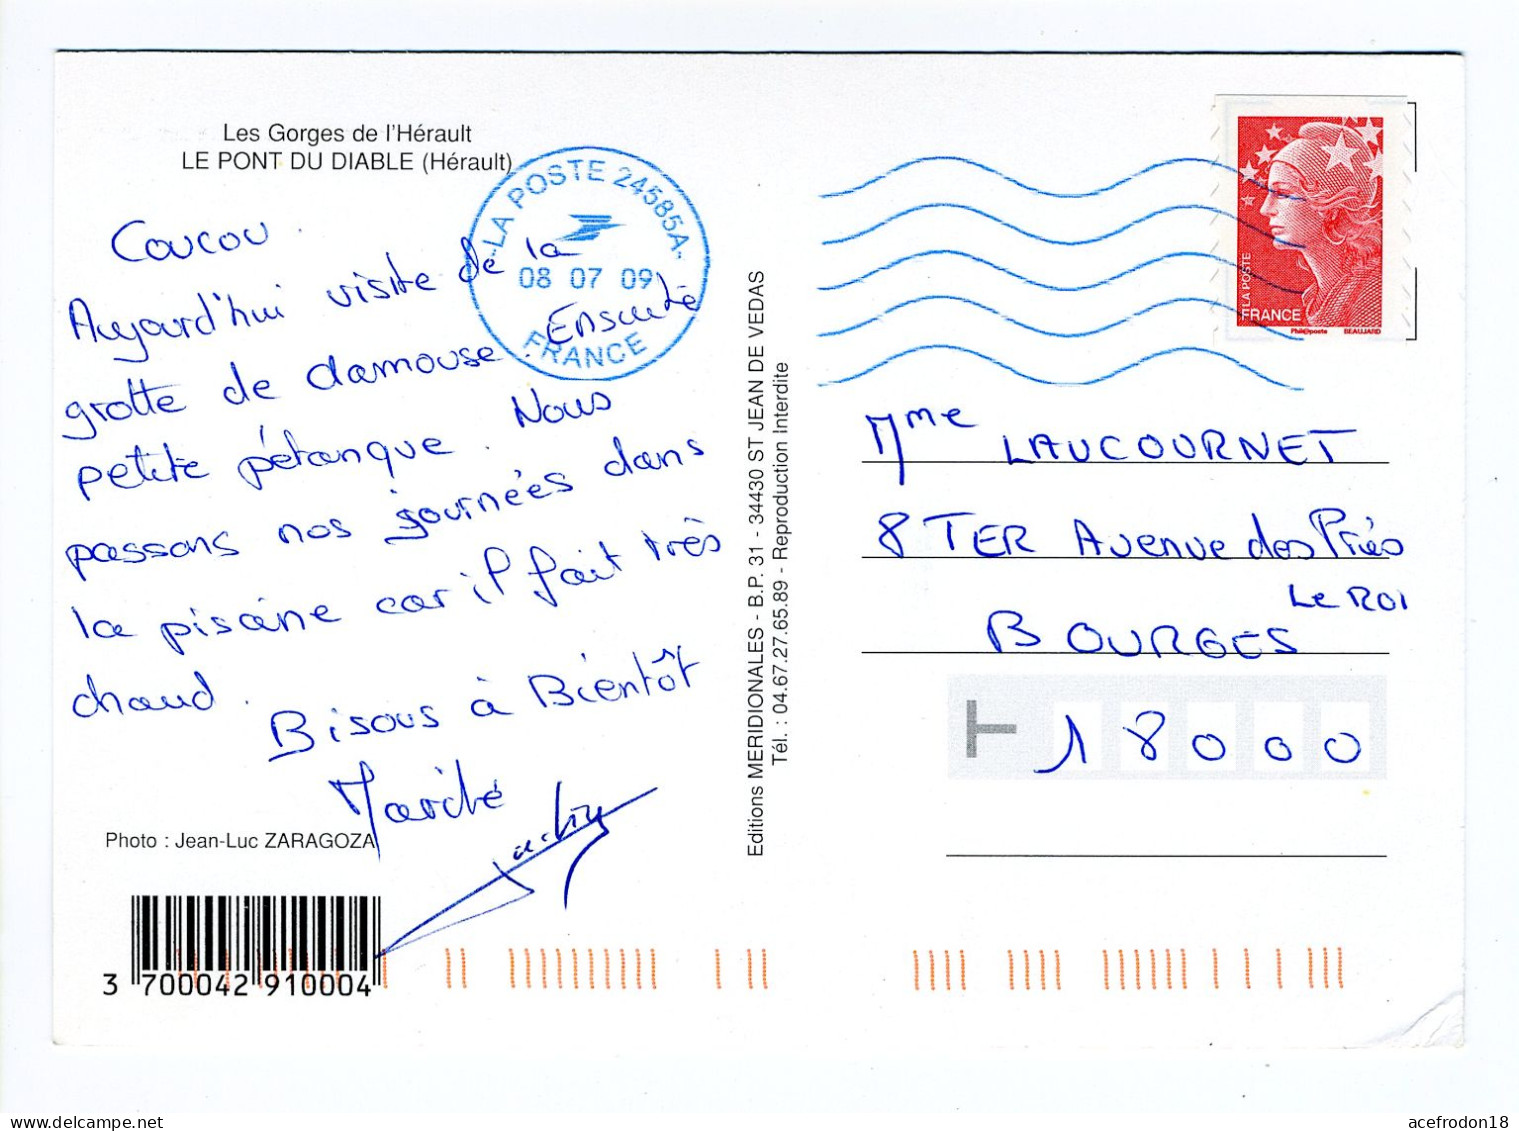 Les Gorges de l'Hérault
LE PONT DU DIABLE (Hérault)
Coucou.
Aujourd'hui visite de la
grotte de clamouse. Ensuite
petite pétanque. Nous
passons nos journées dans
la piscine car il fait très
chaud.
Bisous à Bientôt
Photo : Jean-Luc ZARAGOZA
3 700042 910004
LA POSTE 24585A
08 07 09
FRANCE
Editions MERIDIONALES - B.P. 31 - 34430 ST JEAN DE VEDAS
Tél. : 04.67.27.65.89 - Reproduction Interdite
LA POSTE
FRANCE
Phil@poste BEAUJARD
Mme LAUCOURNET
8 TER Avenue des Prés
Le ROI
BOURGES
18000
acefrodon18